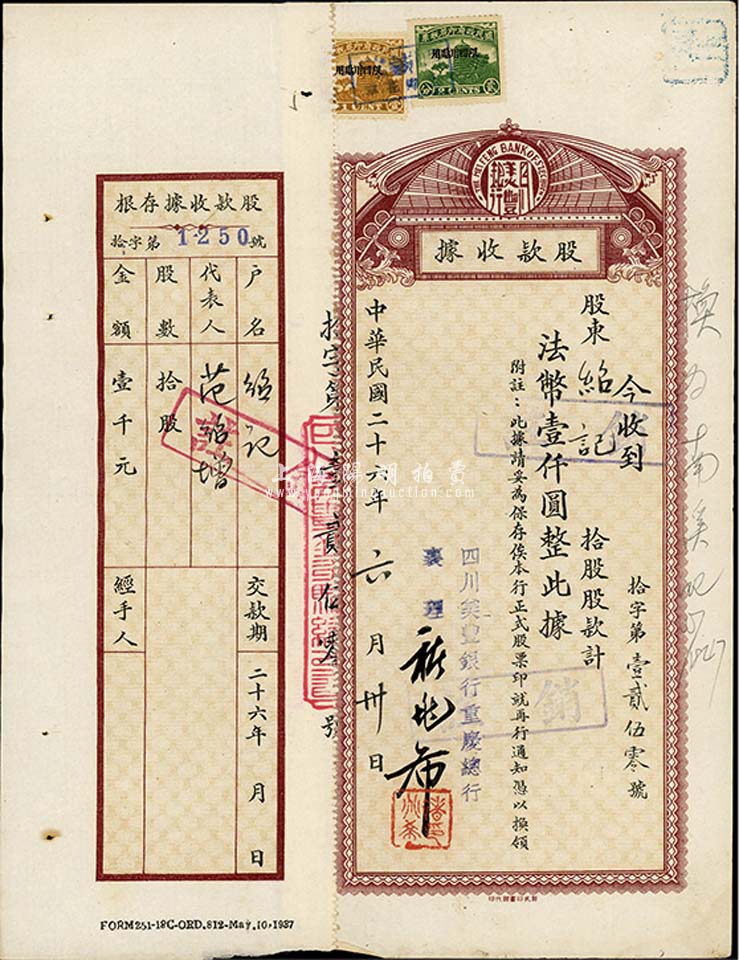 限四川貼用
1 CENT
限四川貼用
分 2 CENTS 貳
THE MEI FENG BANK OF SZECHUEN
美豐銀行
股款收據
拾字第壹貳伍零號
今收到
股東紹記 拾股股款計
法幣壹仟圓整此據
附註：此據請妥為保存俟本行正式股票印就再行通知憑以換領
四川美豐銀行重慶總行
襄理
中華民國二十六年六月卅日
銷
拾字第壹貳伍零號
股款收據存根
拾字第1250號
户名 紹記
代表人 范紹增
股數 拾股
金額 壹千元
交款期 二十六年 月 日
經手人
上海陽明拍賣
FORM251-18C-ORD.812-May.10,1937